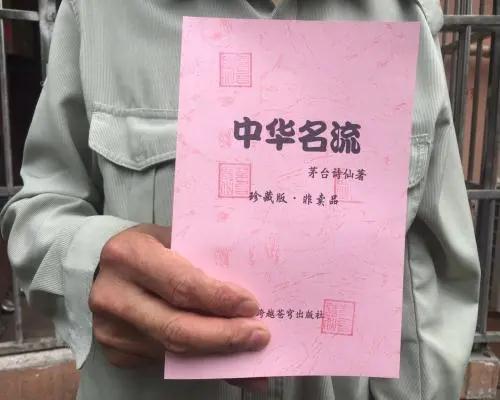 中华名流
茅台詩仙著
珍藏版·非卖品
跨越苍穹出版社